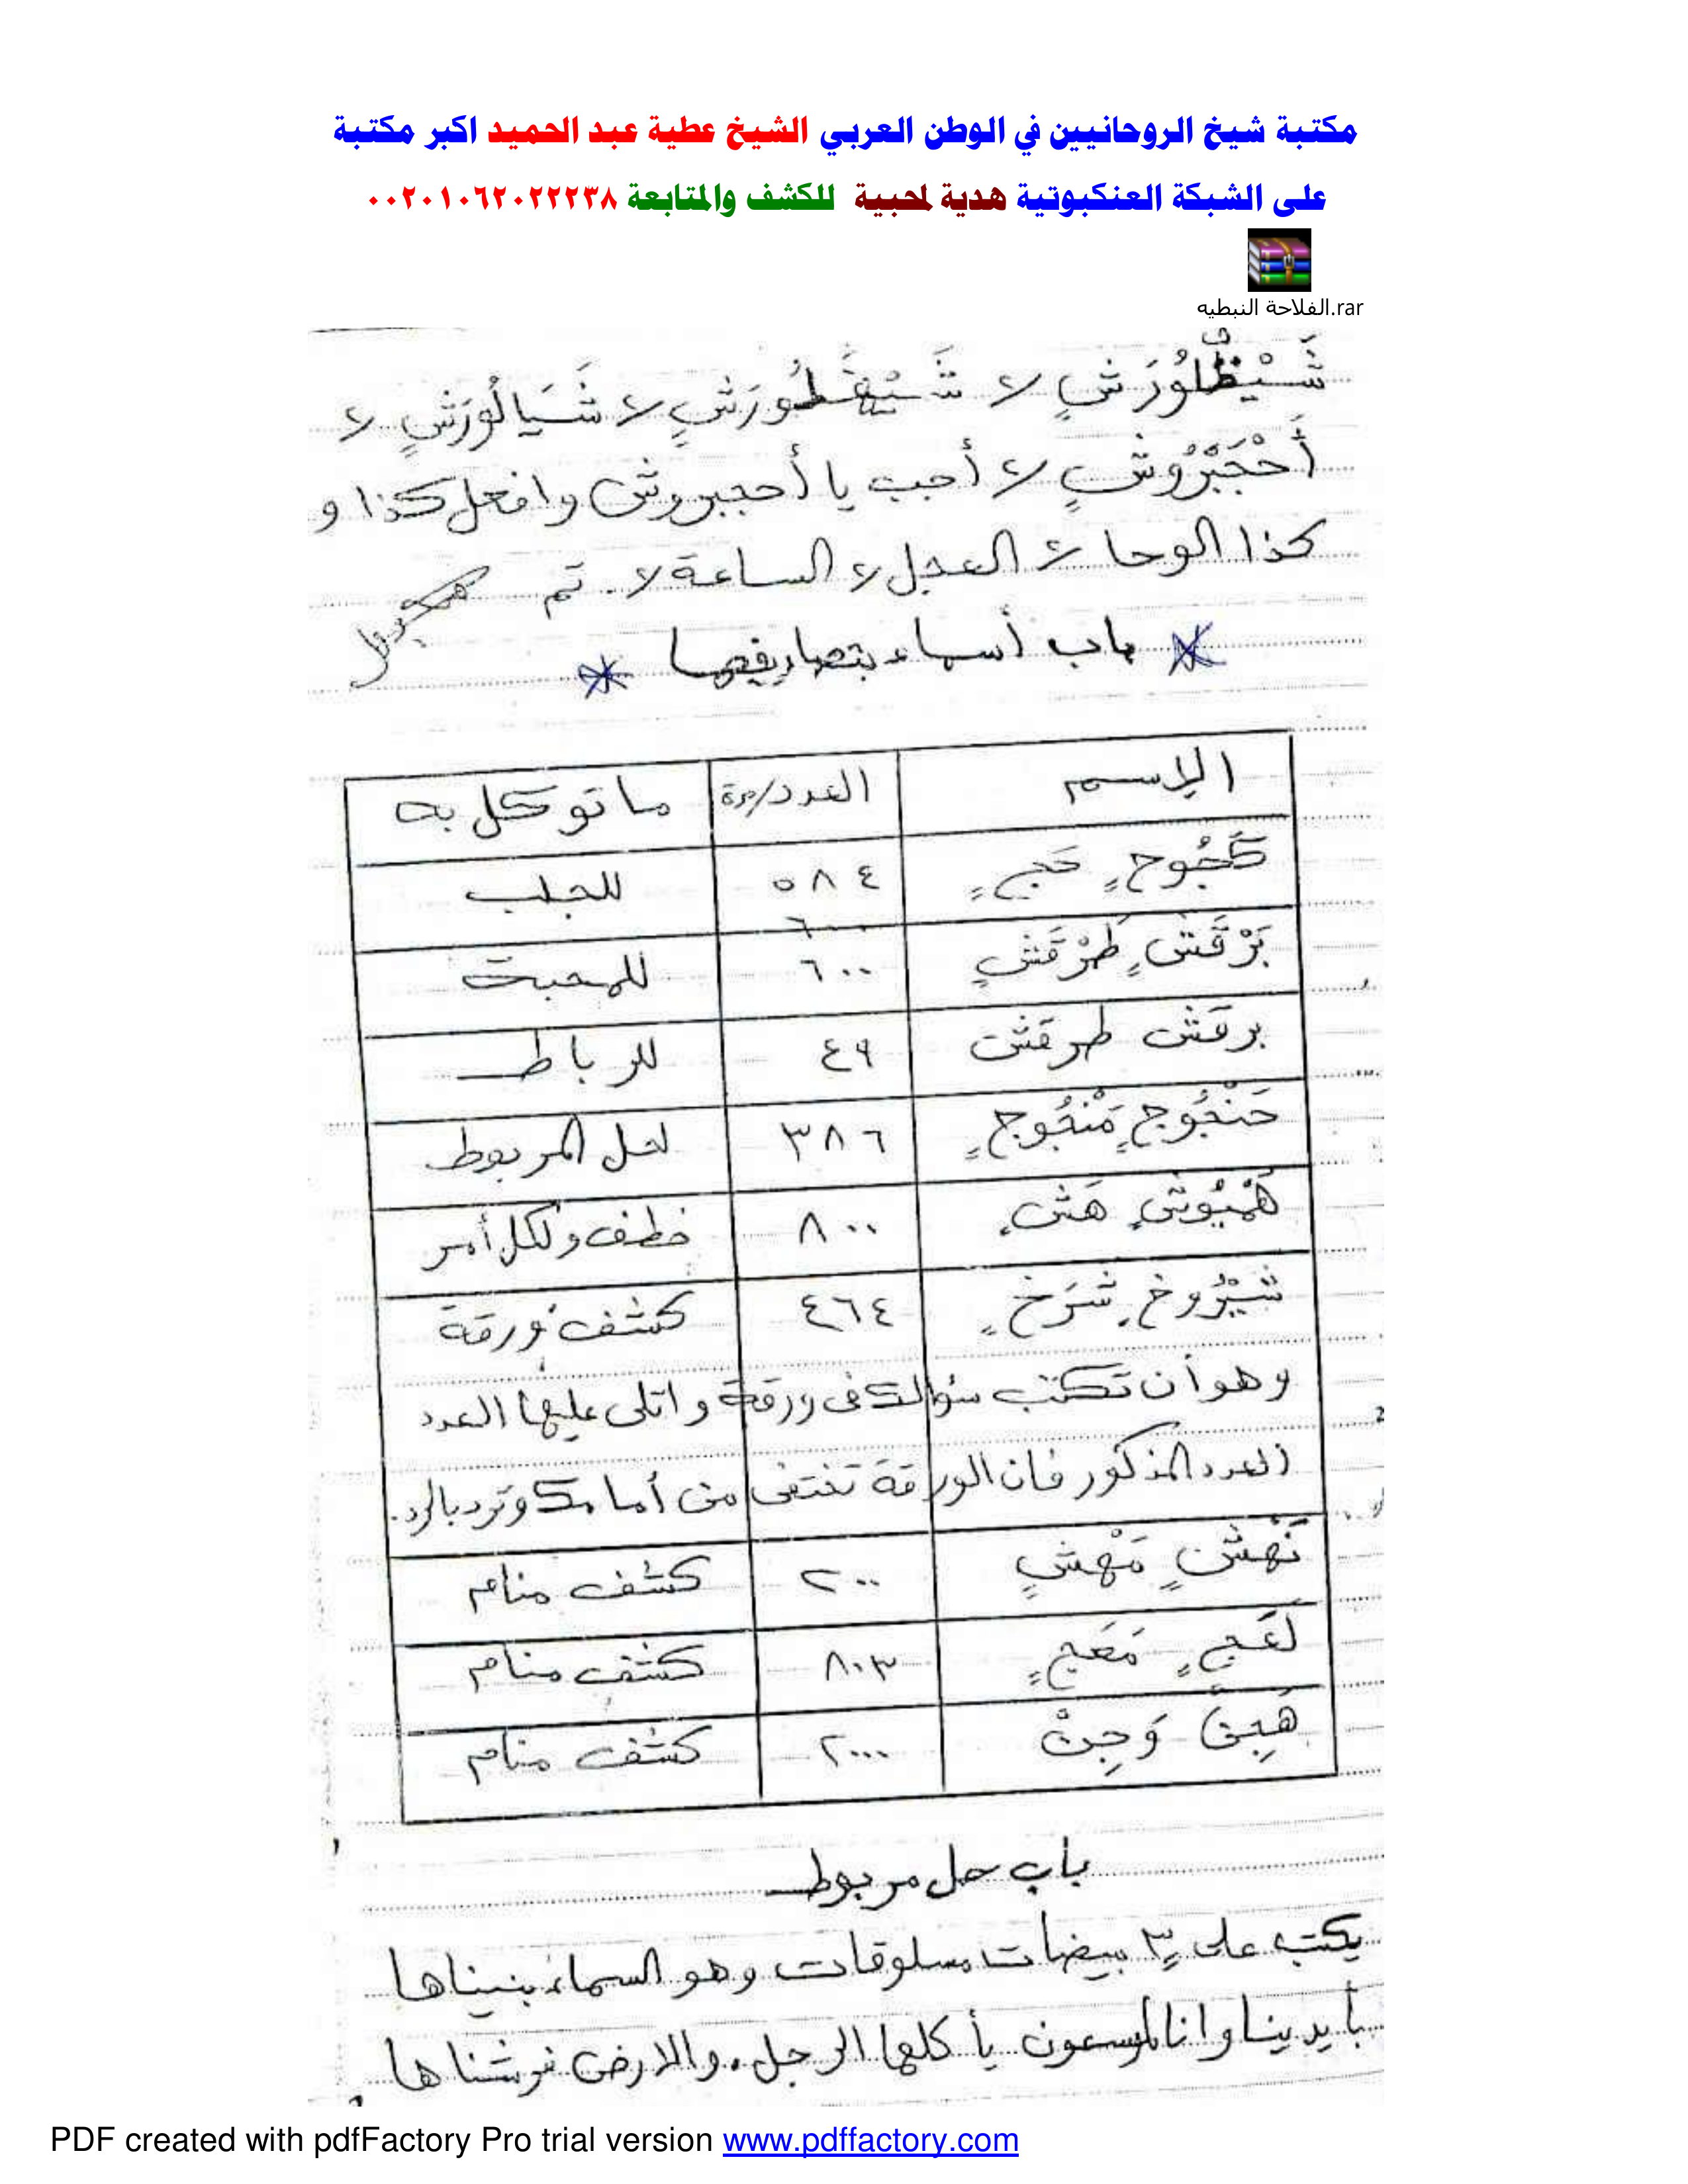 مكتبة شيخ الروحانيين في الوطن العربي الشيخ عطية عبد الحميد اكبر مكتبة
على الشبكة العنكبوتية هدية لمحبية للكشف والمتابعة ٠٠٢٠١٠٦٢٠٢٢٢٣٨
الفلاحة النبطيه.rar
شَيْظُلُورَشٍ ٢ شَيْهَطُورَشٍ ٢ شَيَالُورَشٍ ٢
أَحْجَبْرُوشٍ ٢ أجب يا أحجبروش وافعل كذا و
كذا الوحا ٢ العجل ٢ الساعة ٢. تم
باب أسماء بتصاريفها
الإسم العدد/مرة ما توكل به
٥٨٤ للجلب
٦٠٠
بَرْقَشٍ طَرْقَشٍ ٦٠٠ للمحبت
برقش طرقش ٤٩ للرباط
حَنْجُوجٍ مَنْجُوجٍ ٣٨٦ لحل المربوط
هَمْيُوشٍ هَشٍ ٨٠٠ خطف ولكل أمر
شَيْرُوخٍ شَرَخٍ ٤٦٤ كشف ورقة
وهو أن تكتب سؤالك فى ورقة واتلى عليها العدد
العدد المذكور فان الورقة تختفى من أمامك وترد بالرد.
نَهْشٍ مَهْشٍ ٢٠٠ كشف منام
لَعَجٍ مَعَجٍ ٨٠٣ كشف منام
هَجِنْ وَجِنْ ٢٠٠٠ كشف منام
باب حل مربوط
يكتب على ٣ بيضات مسلوقات وهو السماء بنيناها
بأيدينا وانا لموسعون يأكلها الرجل. والارض فرشناها
PDF created with pdfFactory Pro trial version www.pdffactory.com